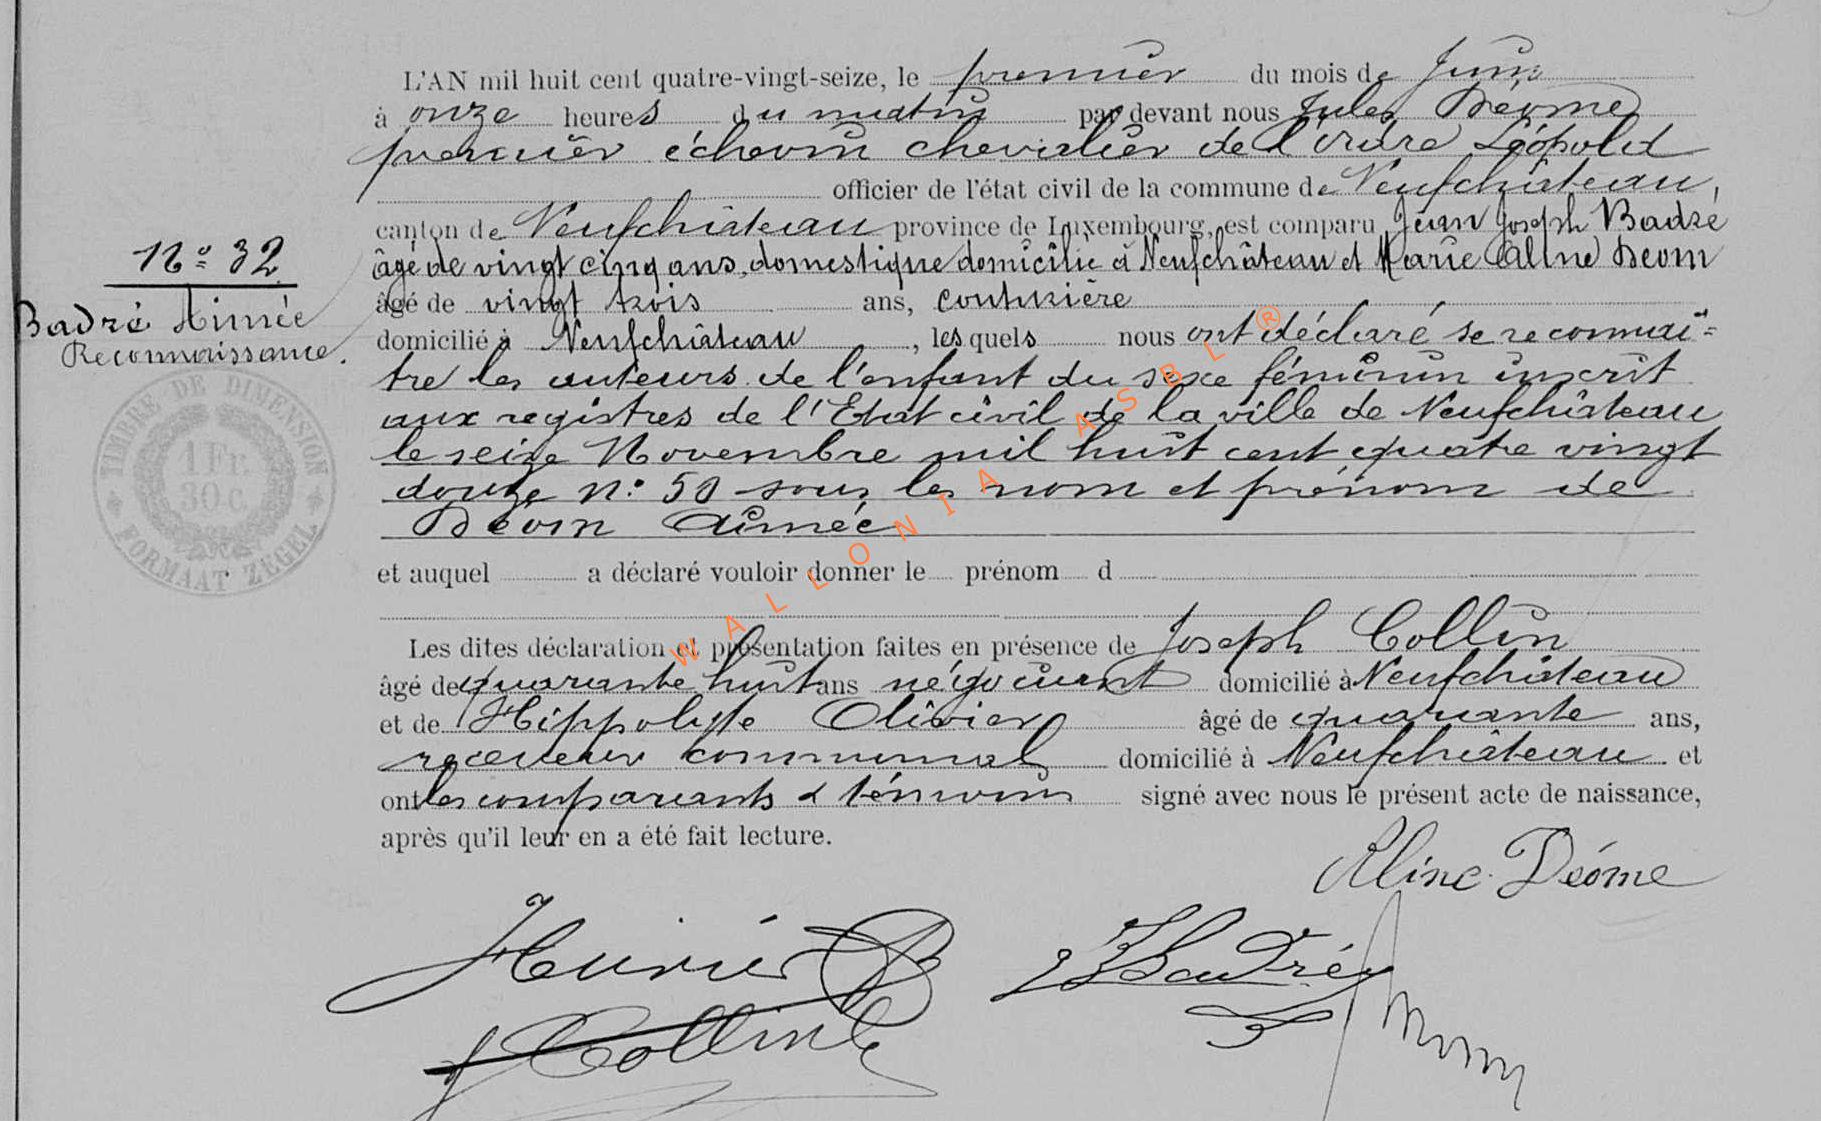 L'AN mil huit cent quatre-vingt-seize, le premier du mois de Juin
à onze heures du matin par devant nous Jules Déome
premier échevin chevalier de l'ordre Léopold
officier de l'état civil de la commune de Neufchâteau,
canton de Neufchâteau province de Luxembourg, est comparu Jean Joseph Badré
âgé de vingt cinq ans, domestique domicilié à Neufchâteau et Marie Aline Deom
âgé de vingt trois ans, couturière
domicilié à Neufchâteau, lesquels nous ont déclaré se reconnaî=
tre les auteurs de l'enfant du sexe féminin inscrit
aux registres de l'Etat civil de la ville de Neufchâteau
le seize Novembre mil huit cent quatre vingt
douze n° 50 sous les nom et prénom de
Déom Aimée
et auquel a déclaré vouloir donner le prénom d
Les dites déclaration et présentation faites en présence de Joseph Collin
âgé de quarante huit ans négociant domicilié à Neufchâteau
et de Hippolyte Olivier âgé de quarante ans,
receveur communal domicilié à Neufchâteau et
ont les comparants & témoins signé avec nous le présent acte de naissance,
après qu'il leur en a été fait lecture.
N° 32
Badré Aimée
Reconnaissance.
TIMBRE DE DIMENSION
1 Fr.
30 c.
FORMAAT ZEGEL
WALLONIA ASBL ®
Aline Déome
J Badré
J Collin